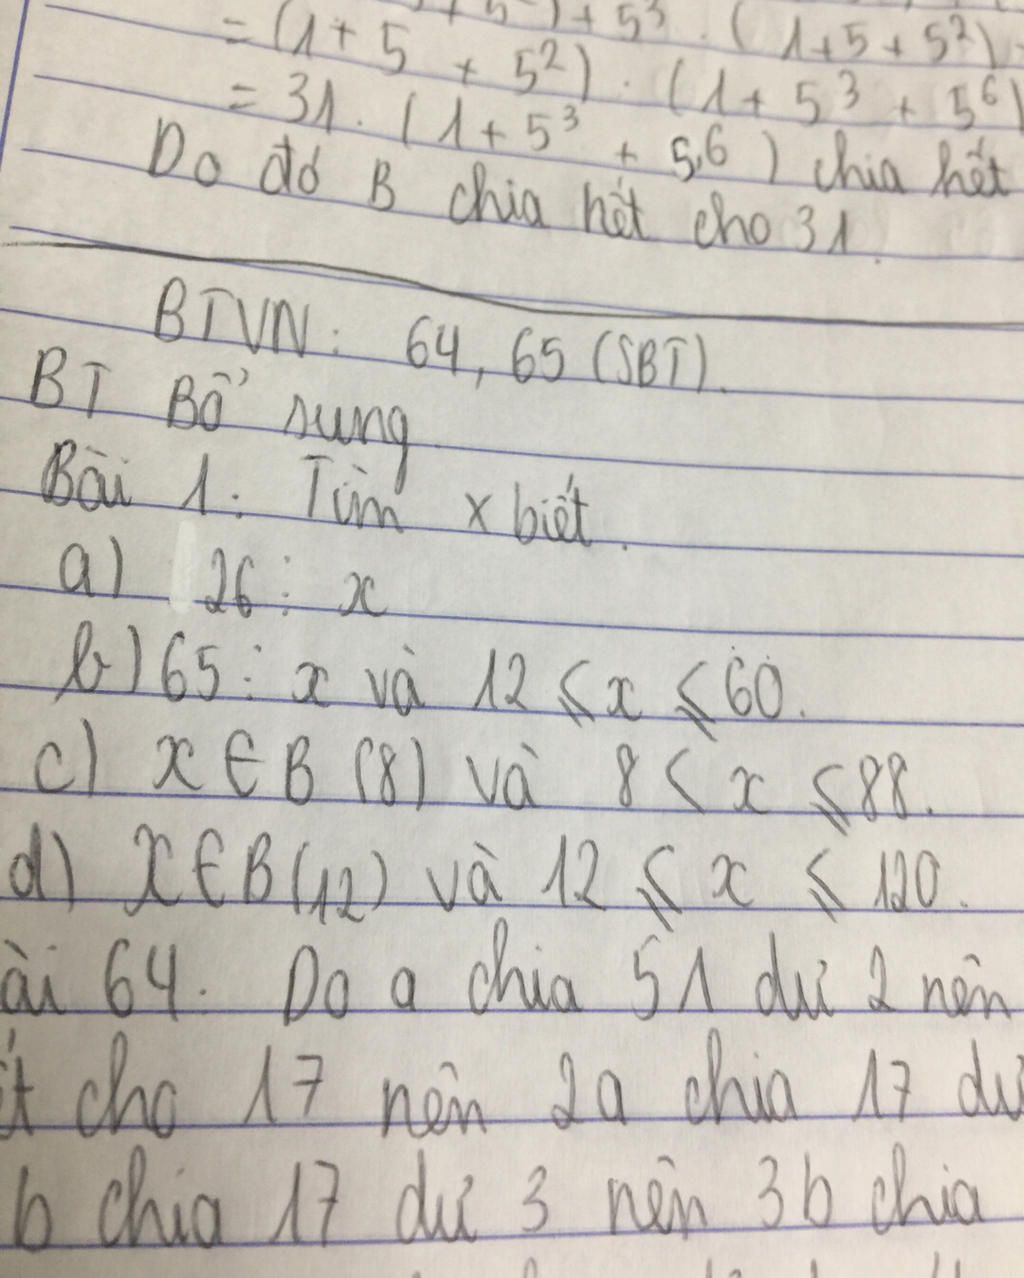 + 5²) + 5³ . (1+5+5²)
= (1+5 + 5²) . (1 + 5³ + 5⁶)
= 31 . (1+5³ + 5,6) chia hết
Do đó B chia hết cho 31.
BTVN: 64, 65 (SBT).
BT Bổ sung
Bài 1: Tìm x biết.
a) 26 ⋮ x
b) 65 ⋮ x và 12 ⩽ x ⩽ 60.
c) x ∈ B (8) và 8 < x ⩽ 88.
d) x ∈ B(12) và 12 ⩽ x ⩽ 120.
ài 64. Do a chia 51 dư 2 nên
cho 17 nên 2a chia 17 dư
b chia 17 dư 3 nên 3b chia